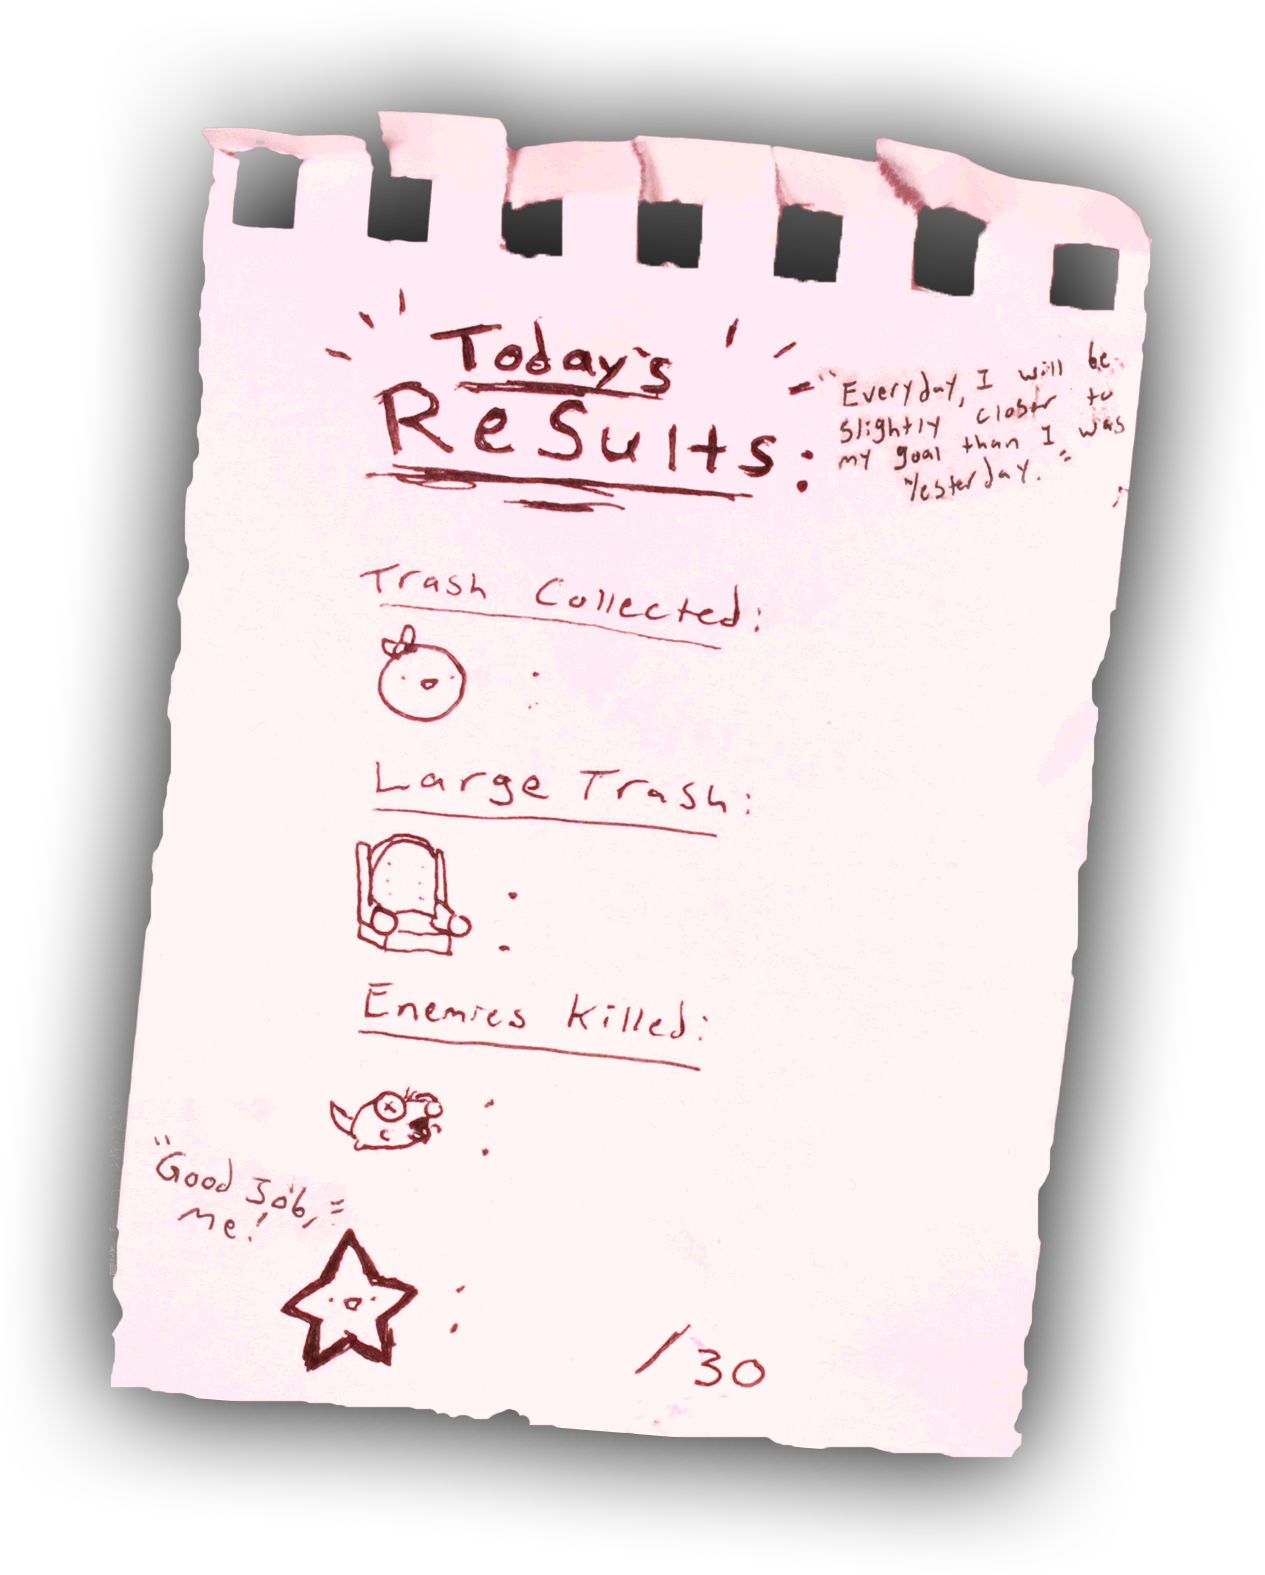 Today's
Results:
"Everyday, I will be
slightly closer to
my goal than I was
Yesterday."
Trash Collected:
:
Large Trash:
:
Enemies Killed:
:
"Good Job,"
me!
:
/30